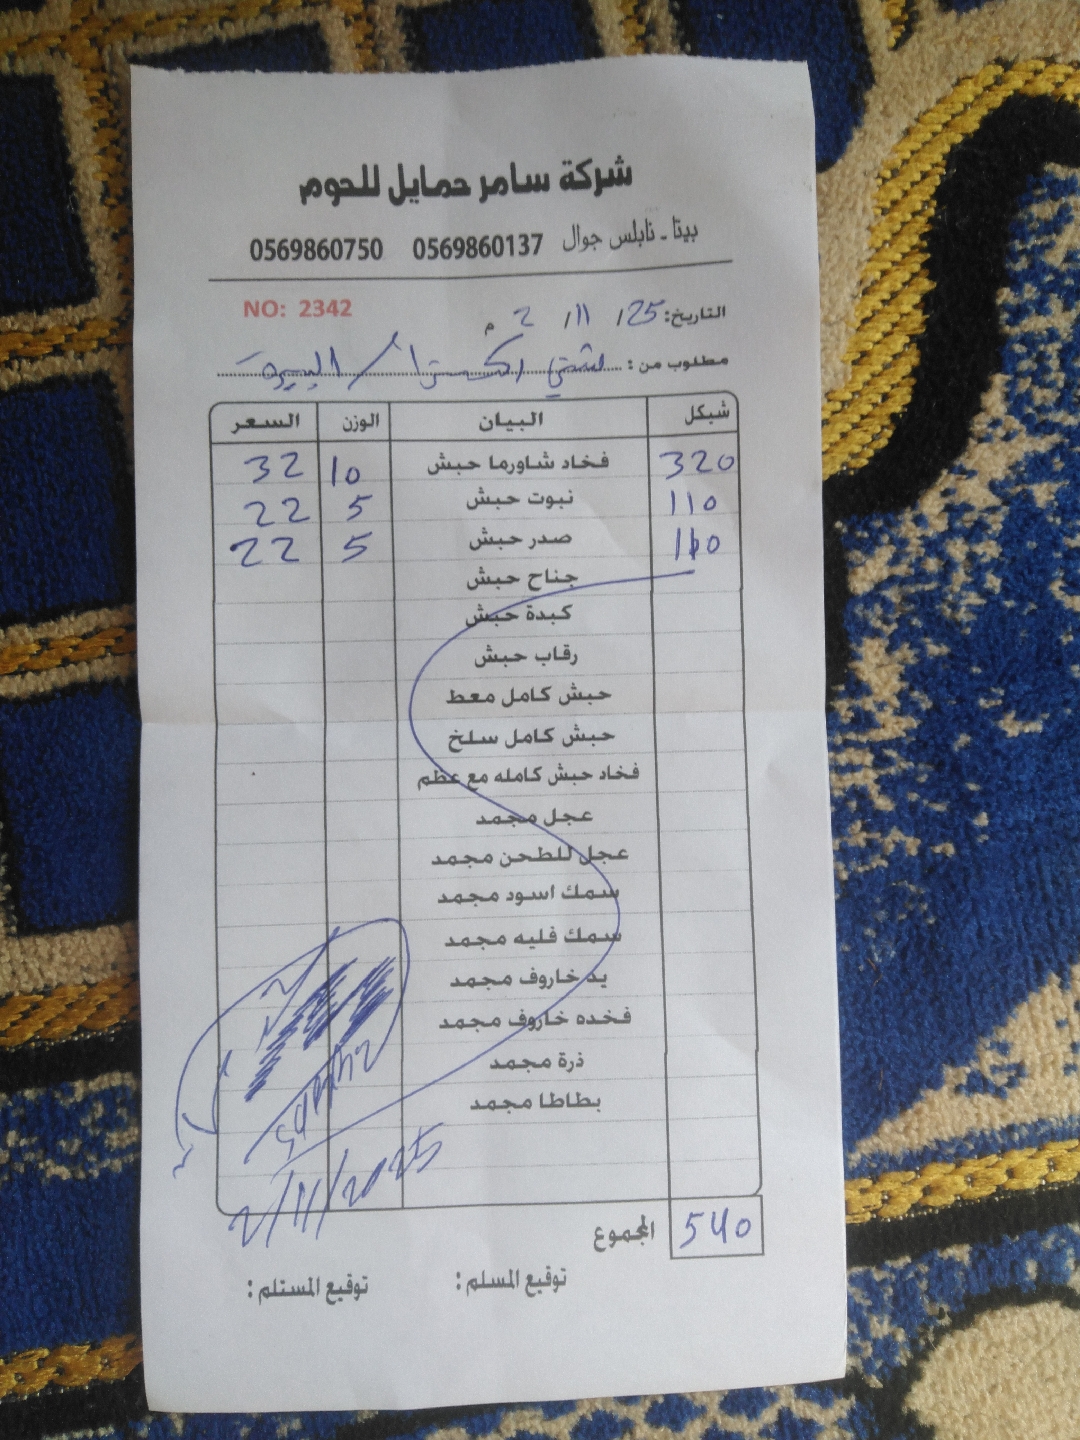 شركة سامر حمايل للحوم
بيتا - نابلس جوال 0569860137 0569860750
NO: 2342
التاريخ: 2 / 11 / 25 م
مطلوب من :
شيكل البيان الوزن السعر
320 فخاد شاورما حبش 10 32
110 نبوت حبش 5 22
110 صدر حبش 5 22
جناح حبش
كبدة حبش
رقاب حبش
حبش كامل معط
حبش كامل سلخ
فخاد حبش كامله مع عظم
عجل مجمد
عجل للطحن مجمد
سمك اسود مجمد
سمك فليه مجمد
يد خاروف مجمد
فخده خاروف مجمد
ذرة مجمد
بطاطا مجمد
2/11/2025
المجموع 540
توقيع المسلم : توقيع المستلم :